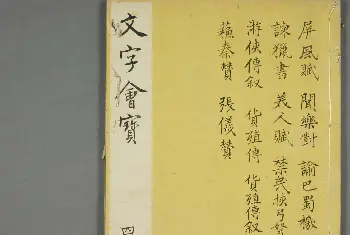 文字會寶
四
屏風賦 聞樂對 諭巴蜀檄
諫獵書 美人賦 禁民挾弓弩
游俠傳敘 貨殖傳 貨殖傳敘
蘇秦贊 張儀贊